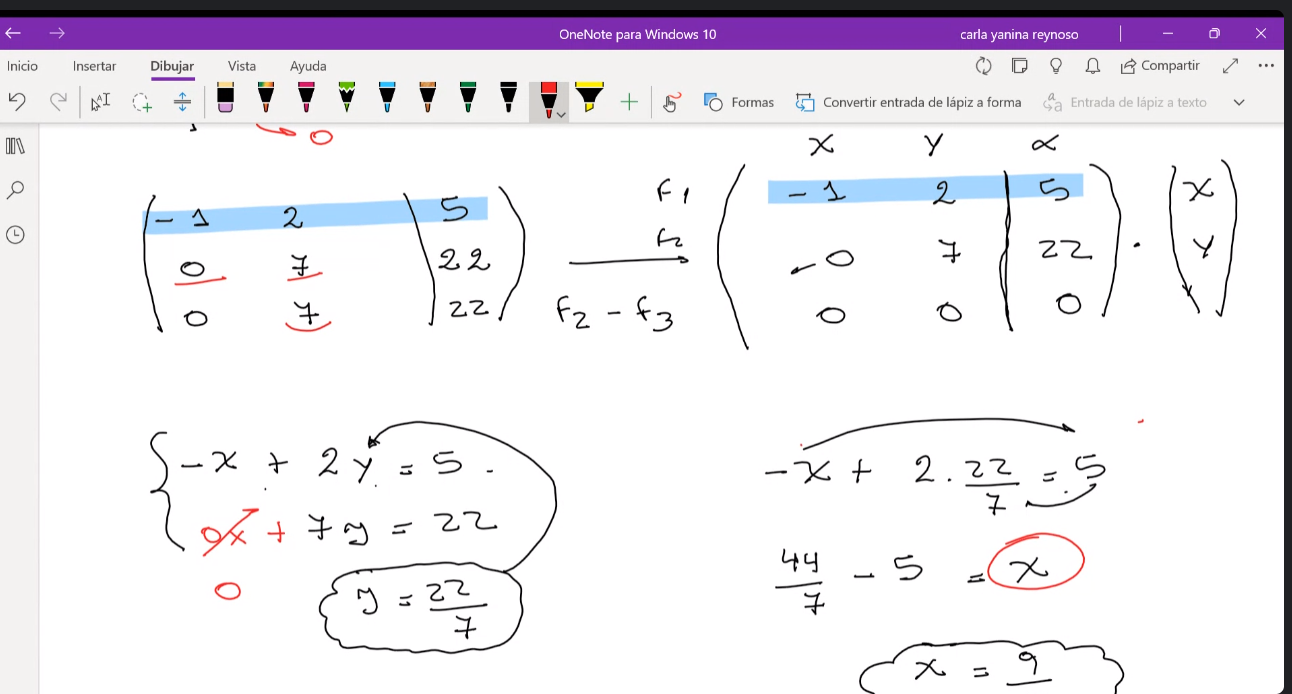 OneNote para Windows 10
carla yanina reynoso
Inicio Insertar Dibujar Vista Ayuda
Compartir
Formas Convertir entrada de lápiz a forma Entrada de lápiz a texto
0
X Y α
-1 2 5
0 7 22
0 7 22
F1
F2
F2 - F3
-1 2 5
0 7 22
0 0 0
·
X
Y
-x + 2y = 5
0x + 7y = 22
0
y = 22/7
-x + 2 · 22/7 = 5
44/7 - 5 = x
x = 9